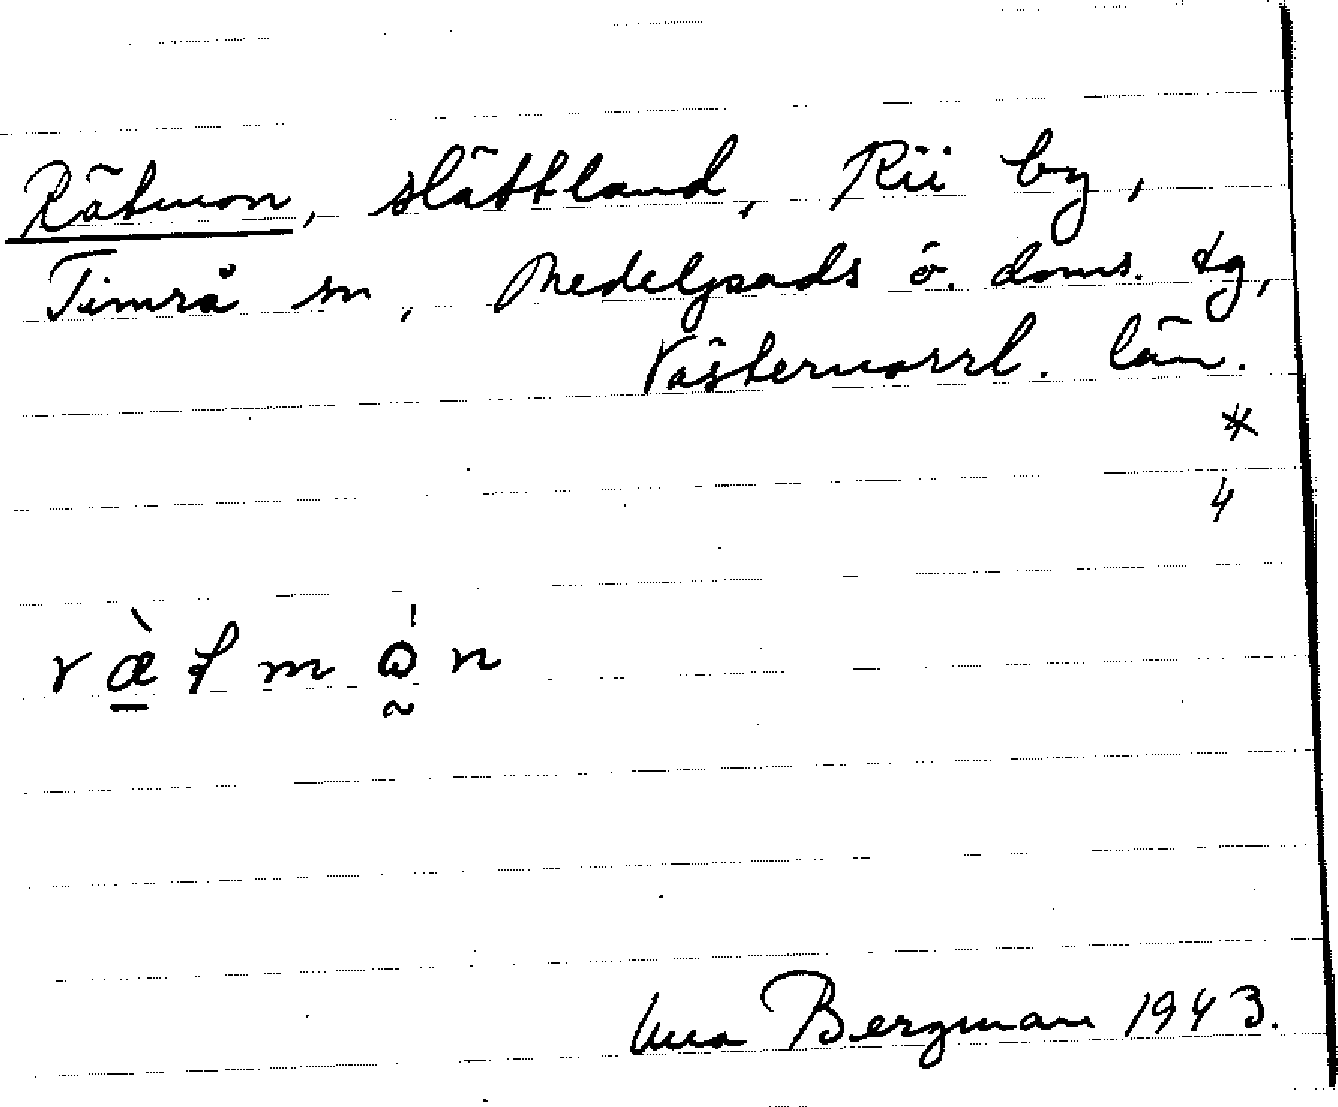 Rätmon, slåttland, Rii by,
Timrå sn, Medelpads ö. doms. tg,
Västernorrl. län.
*
4
Bergman 1943.